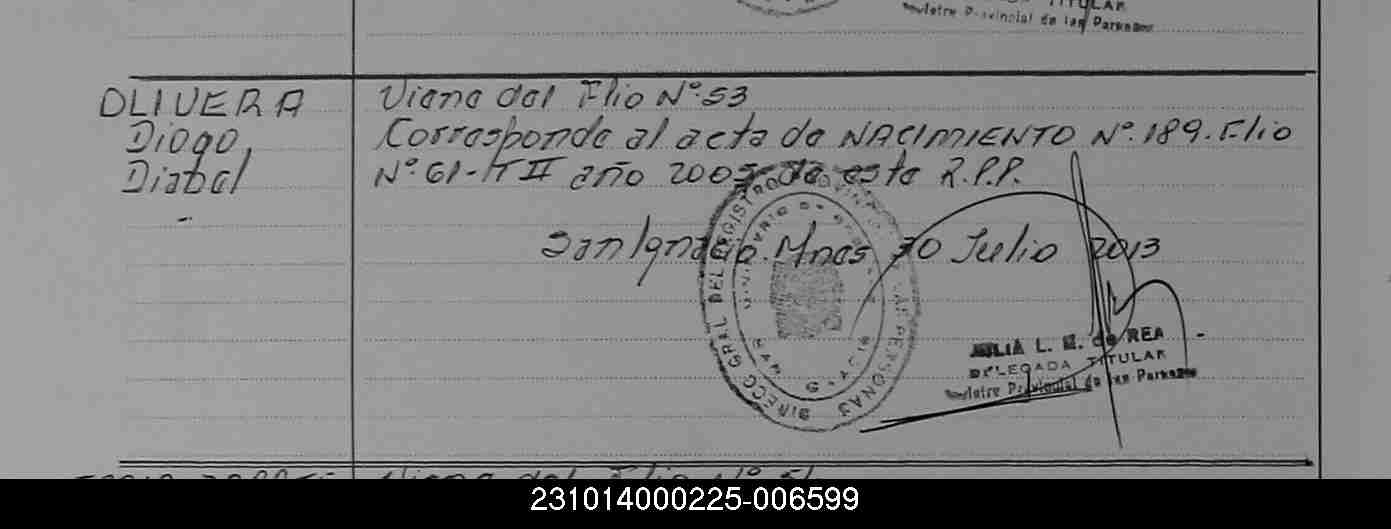 TITULAR
Registro Provincial de las Personas
OLIVERA
Diogo,
Diabel
Viene del Flio Nº 53
Corresponde al acta de NACIMIENTO Nº. 189. Flio
Nº. 61-T II año 2005 de este R.P.P.
San Ignacio. Mnes 30 Julio 2013
DIRECC GRAL DEL REGISTRO PROVINCIAL DE LAS PERSONAS
JULIA L. M. de REA
DELEGADA TITULAR
Registro Provincial de las Personas
Viene del Flio Nº 54
231014000225-006599